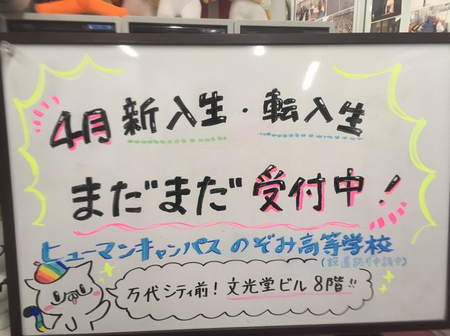 4月新入生・転入生
まだまだ受付中!
ヒューマンキャンパスのぞみ高等学校
(設置認可申請中)
万代シティ前!文光堂ビル8階!!